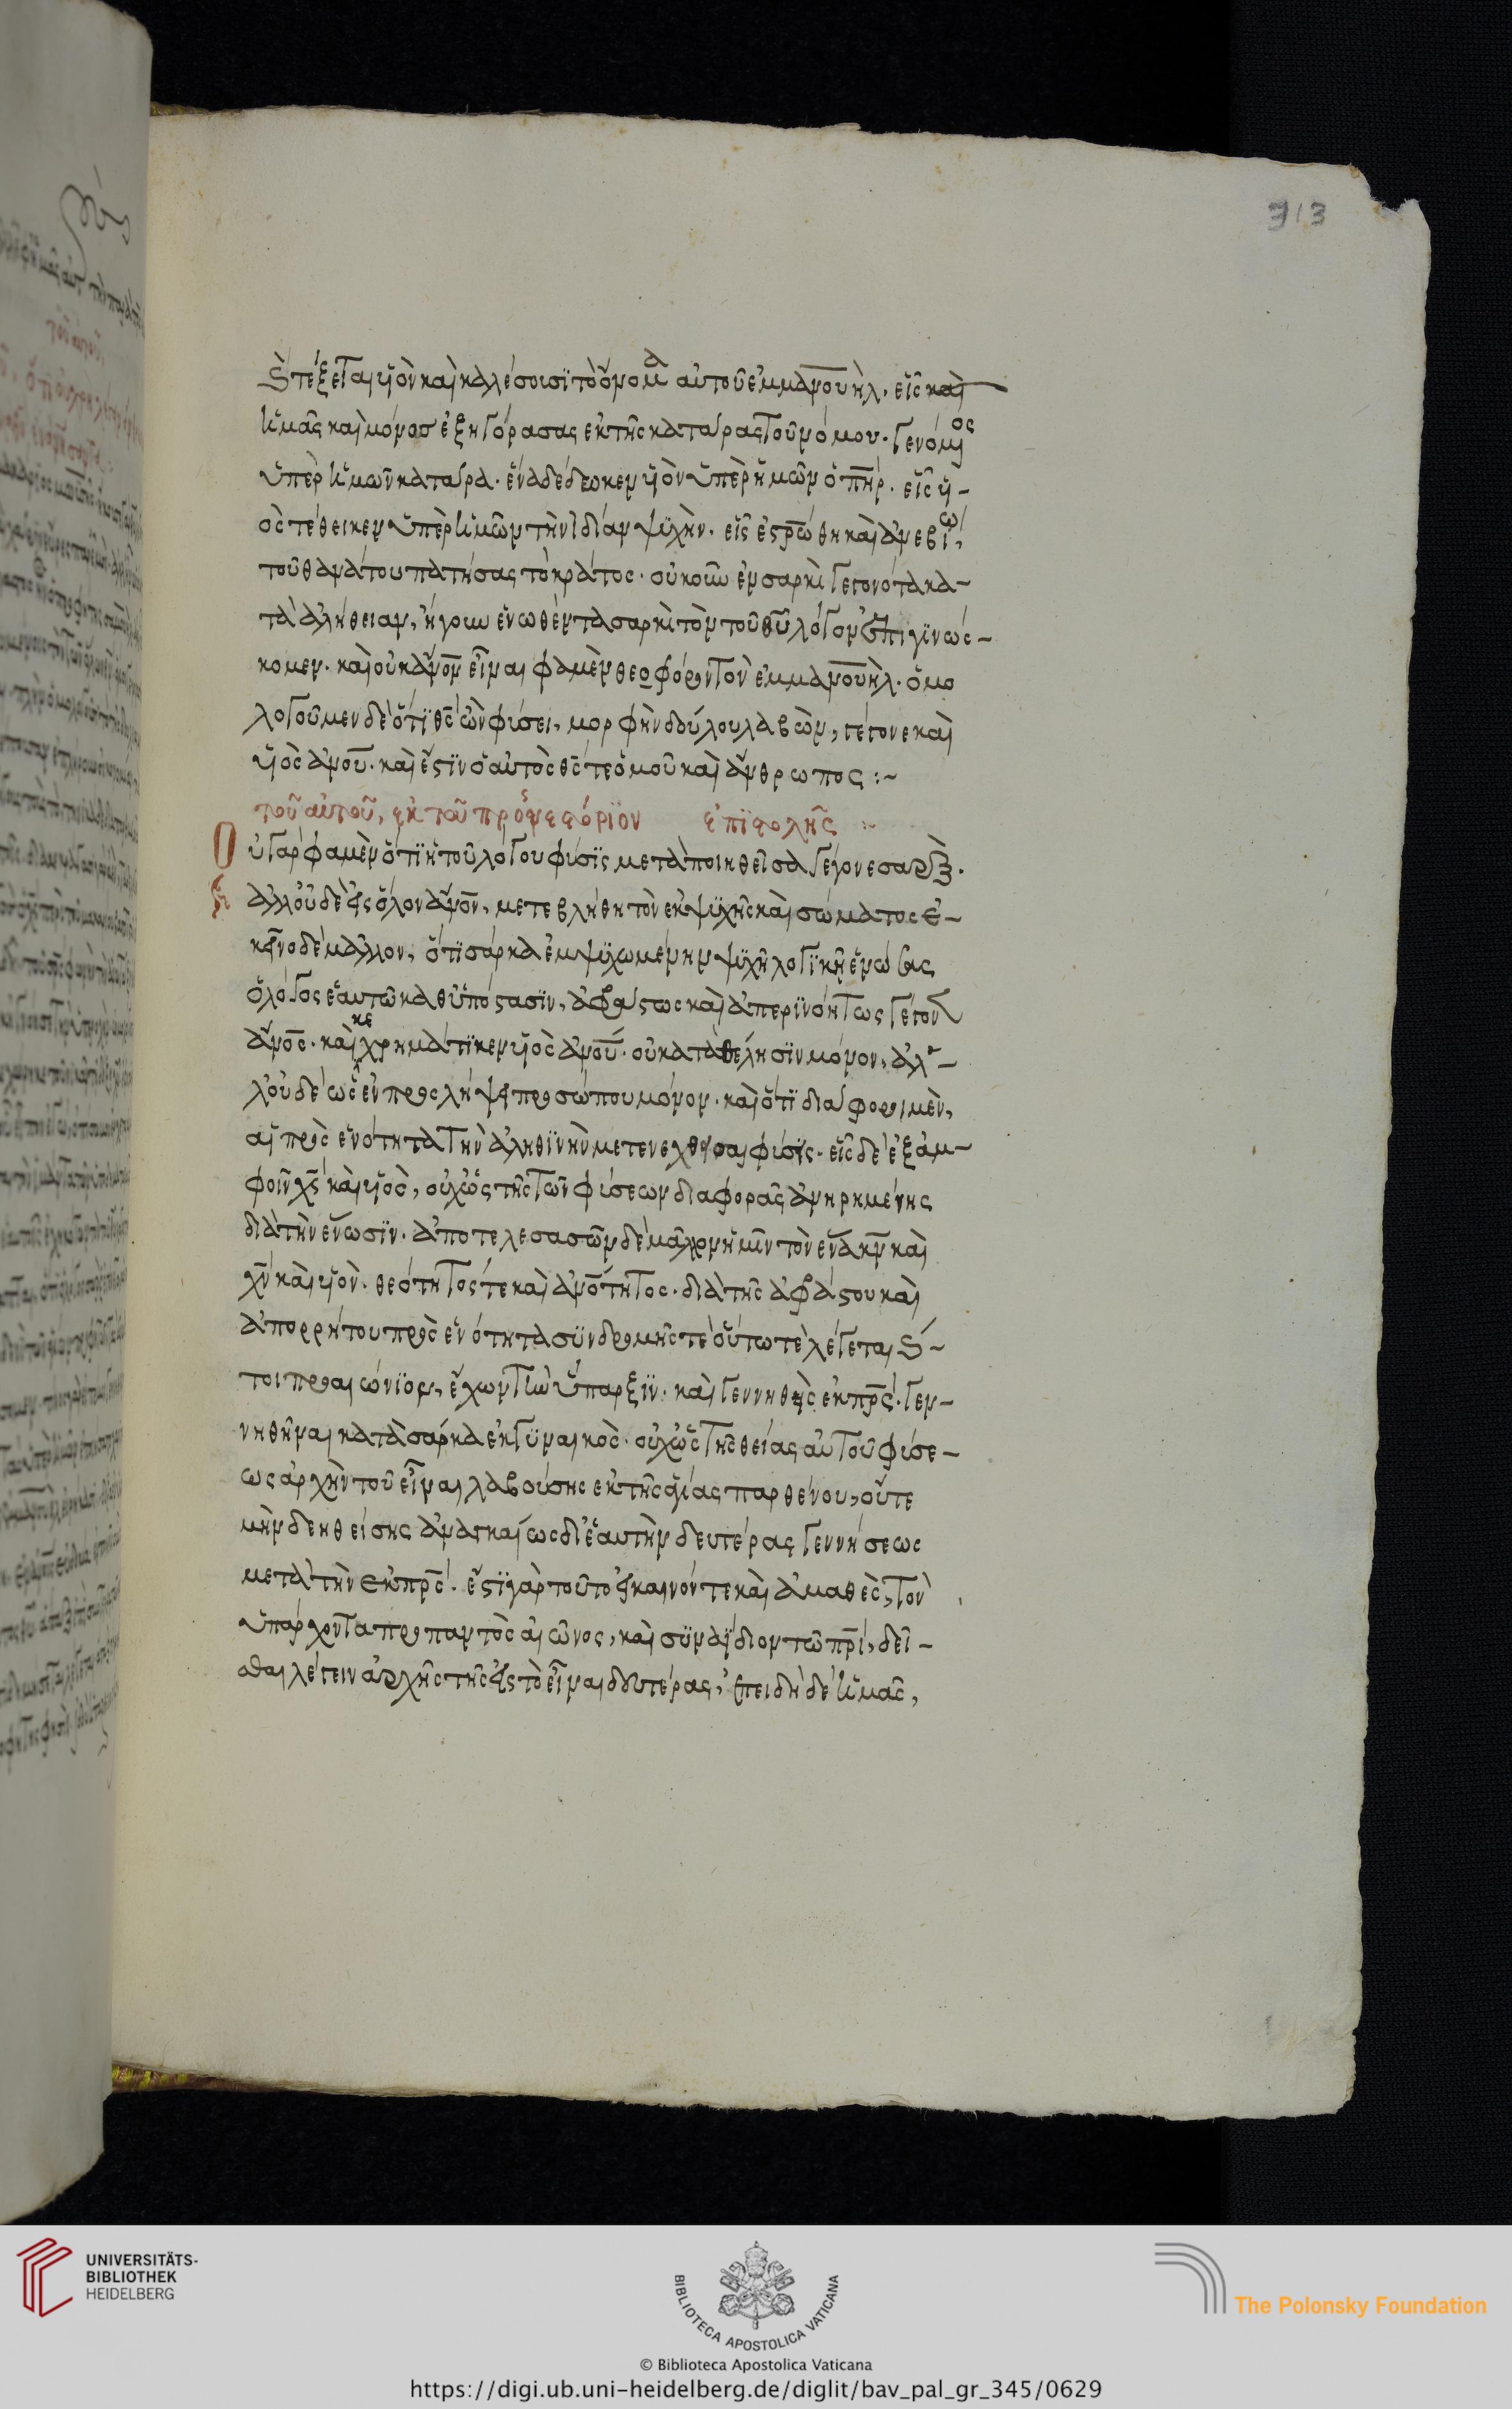 313
ϛ τέξεται υἱὸν καὶ καλέσουσι τὸ ὄνομα αὐτοῦ ἐμμανουήλ. εἷς καὶ
ἡμᾶς καὶ μόνος ἐξηγόρασας ἐκ τῆς κατάρας τοῦ νόμου. γενόμος
ὑπὲρ ἡμῶν κατάρα. ἕνα δέδωκεν υἱὸν ὑπὲρ ἡμῶν ὁ πηρ. εἷς υἱ-
ὸς τέθεικεν ὑπὲρ ἡμῶν τὴν ἰδίαν ψυχὴν. εἷς ἐσρώθη καὶ ἀνεβίω,
τοῦ θανάτου πατήσας τὸ κράτος. οὐκοῦν ἐν σαρκὶ γεγονότα κα-
τὰ ἀλήθειαν, ἤγουν ἑνωθέντα σαρκὶ τὸν τοῦ θυ λόγον ἐπιγινώσ-
κομεν. καὶ οὐκ ανον εἶναι φαμὲν θεοφόρον τὸν ἐμμανουήλ. ὁμο
λογοῦμεν δὲ ὅτι θς ὢν φύσει, μορφὴν δούλου λαβὼν, γέγονε καὶ
υἱὸς ανου. καὶ ἔστιν ὁ αὐτὸς θς τε ὁμοῦ καὶ ἄνθρωπος :~
τοῦ αὐτοῦ, ἐκ τοῦ πρὸς νεστόριον ἐπιστολῆς :~
Οὐ γάρ φαμὲν ὅτι ἡ τοῦ λόγου φύσις μεταποιηθεῖσα γέγονε σαρξ.
ἀλλ' οὐδὲ εἰς ὅλον ανον, μετεβλήθη τὸν ἐκ ψυχῆς καὶ σώματος ἐ-
κεῖνο δὲ μᾶλλον, ὅτι σάρκα ἐμψυχωμένην ψυχῇ λογικῇ ἑνώσας
ὁ λόγος ἑαυτῶ καθ' ὑπόστασιν, ἀφράστως καὶ ἀπερινοήτως γέγονεν
ανος. καὶ κεχρημάτικεν υἱὸς ανου. οὐ κατὰ θέλησιν μόνον, ἀλ-
λ' οὐδὲ ὡς ἐν προσλήψει προσώπου μόνον. καὶ ὅτι διάφοροι μὲν,
αἱ πρὸς ἑνότητα τὴν ἀληθινὴν μετενεχθεῖσαι φύσις. εἷς δὲ ἐξ ἀμ-
φοῖν χς καὶ υἱὸς, οὐχ ὡς τῆς τῶν φύσεων διαφορᾶς ἀνηρημένης
διὰ τὴν ἕνωσιν. ἀποτελεσασῶν δὲ μᾶλλον ἡμῖν τὸν ἕνα κν καὶ
χν καὶ υἱὸν. θεότητός τε καὶ ανότητος. διὰ τῆς ἀφράστου καὶ
ἀπορρήτου πρὸς ἑνότητα συνδρομῆς τε οὕτω τε λέγεται ϛ-
τοι προαιώνιον, ἔχων τὴν ὕπαρξιν. καὶ γεννηθεὶς ἐκ πρς. γεν-
νηθῆναι κατὰ σάρκα ἐκ γυναικὸς. οὐχ ὡς τῆς θείας αὐτοῦ φύσε-
ως ἀρχὴν τοῦ εἶναι λαβούσης ἐκ τῆς ἁγίας παρθένου, οὔτε
μὴν δεηθείσης ἀναγκαίως δι' ἑαυτὴν δευτέρας γεννήσεως
μετὰ τὴν ἐκ πρς. ἔστι γὰρ τοῦτο εἰκαιόν τε καὶ ἀμαθὲς, τὸν
ὑπάρχοντα προ παντὸς αἰῶνος, καὶ συναΐδιον τῶ πρι, δεῖ-
σθαι λέγειν ἀρχῆς τῆς εἰς τὸ εἶναι δευτέρας, ἐπειδὴ δὲ ἡμᾶς,
UNIVERSITÄTS-
BIBLIOTHEK
HEIDELBERG
BIBLIOTECA APOSTOLICA VATICANA
The Polonsky Foundation
© Biblioteca Apostolica Vaticana
https://digi.ub.uni-heidelberg.de/diglit/bav_pal_gr_345/0629